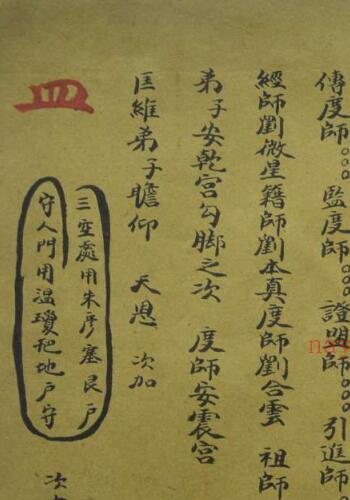 傳度師。。。監度師。。。證盟師。。。引進師。。。
經師劉微星籍師劉本真度師劉合雲 祖師
弟子安乾宮勾脚之次 度師安震宮
匡維弟子瞻仰 天恩 次加
三空處用朱彥塞艮户
守人門用温瓊把地户守
次
罡